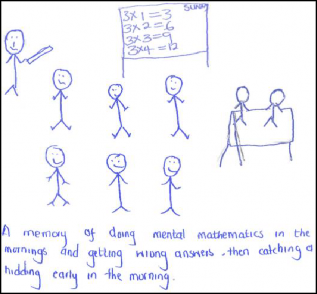 3x1=3
3x2=6
3x3=9
3x4=12
A memory of doing mental mathematics in the
mornings and getting wrong answers, then catching a
hidding early in the morning.